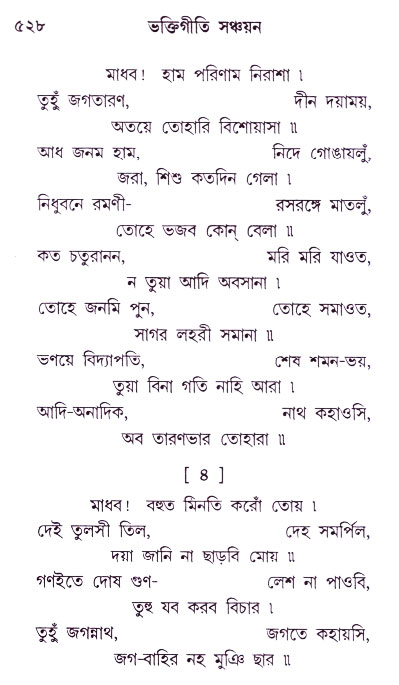 ৫২৮ ভক্তিগীতি সঞ্চয়ন
মাধব! হাম পরিণাম নিরাশা ৷
তুহুঁ জগতারণ, দীন দয়াময়,
অতয়ে তোহারি বিশোয়াসা ৷৷
আধ জনম হাম, নিদে গোঙাযলুঁ,
জরা, শিশু কতদিন গেলা ৷
নিধুবনে রমণী- রসরঙ্গে মাতলুঁ,
তোহে ভজব কোন্ বেলা ৷৷
কত চতুরানন, মরি মরি যাওত,
ন তুয়া আদি অবসানা ৷
তোহে জনমি পুন, তোহে সমাওত,
সাগর লহরী সমানা ৷৷
ভণয়ে বিদ্যাপতি, শেষ শমন-ভয়,
তুয়া বিনা গতি নাহি আরা ৷
আদি-অনাদিক, নাথ কহাওসি,
অব তারণভার তোহারা ৷৷
[ ৪ ]
মাধব! বহুত মিনতি করোঁ তোয় ৷
দেই তুলসী তিল, দেহ সমর্পিল,
দয়া জানি না ছাড়বি মোয় ৷৷
গণইতে দোষ গুণ- লেশ না পাওবি,
তুহু যব করব বিচার ৷
তুহুঁ জগন্নাথ, জগতে কহায়সি,
জগ-বাহির নহ মুঞি ছার ৷৷